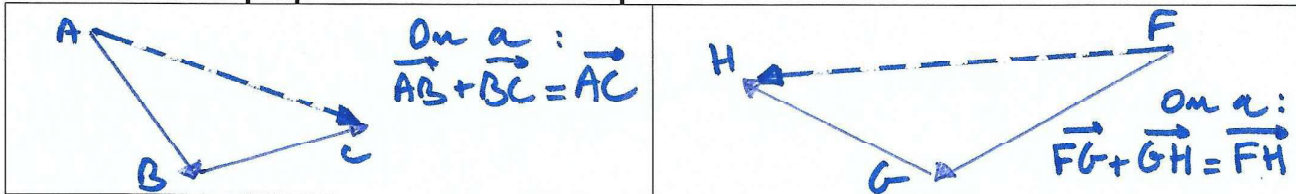 A
B
C
On a :
$\overrightarrow{AB} + \overrightarrow{BC} = \overrightarrow{AC}$
H
F
G
On a :
$\overrightarrow{FG} + \overrightarrow{GH} = \overrightarrow{FH}$